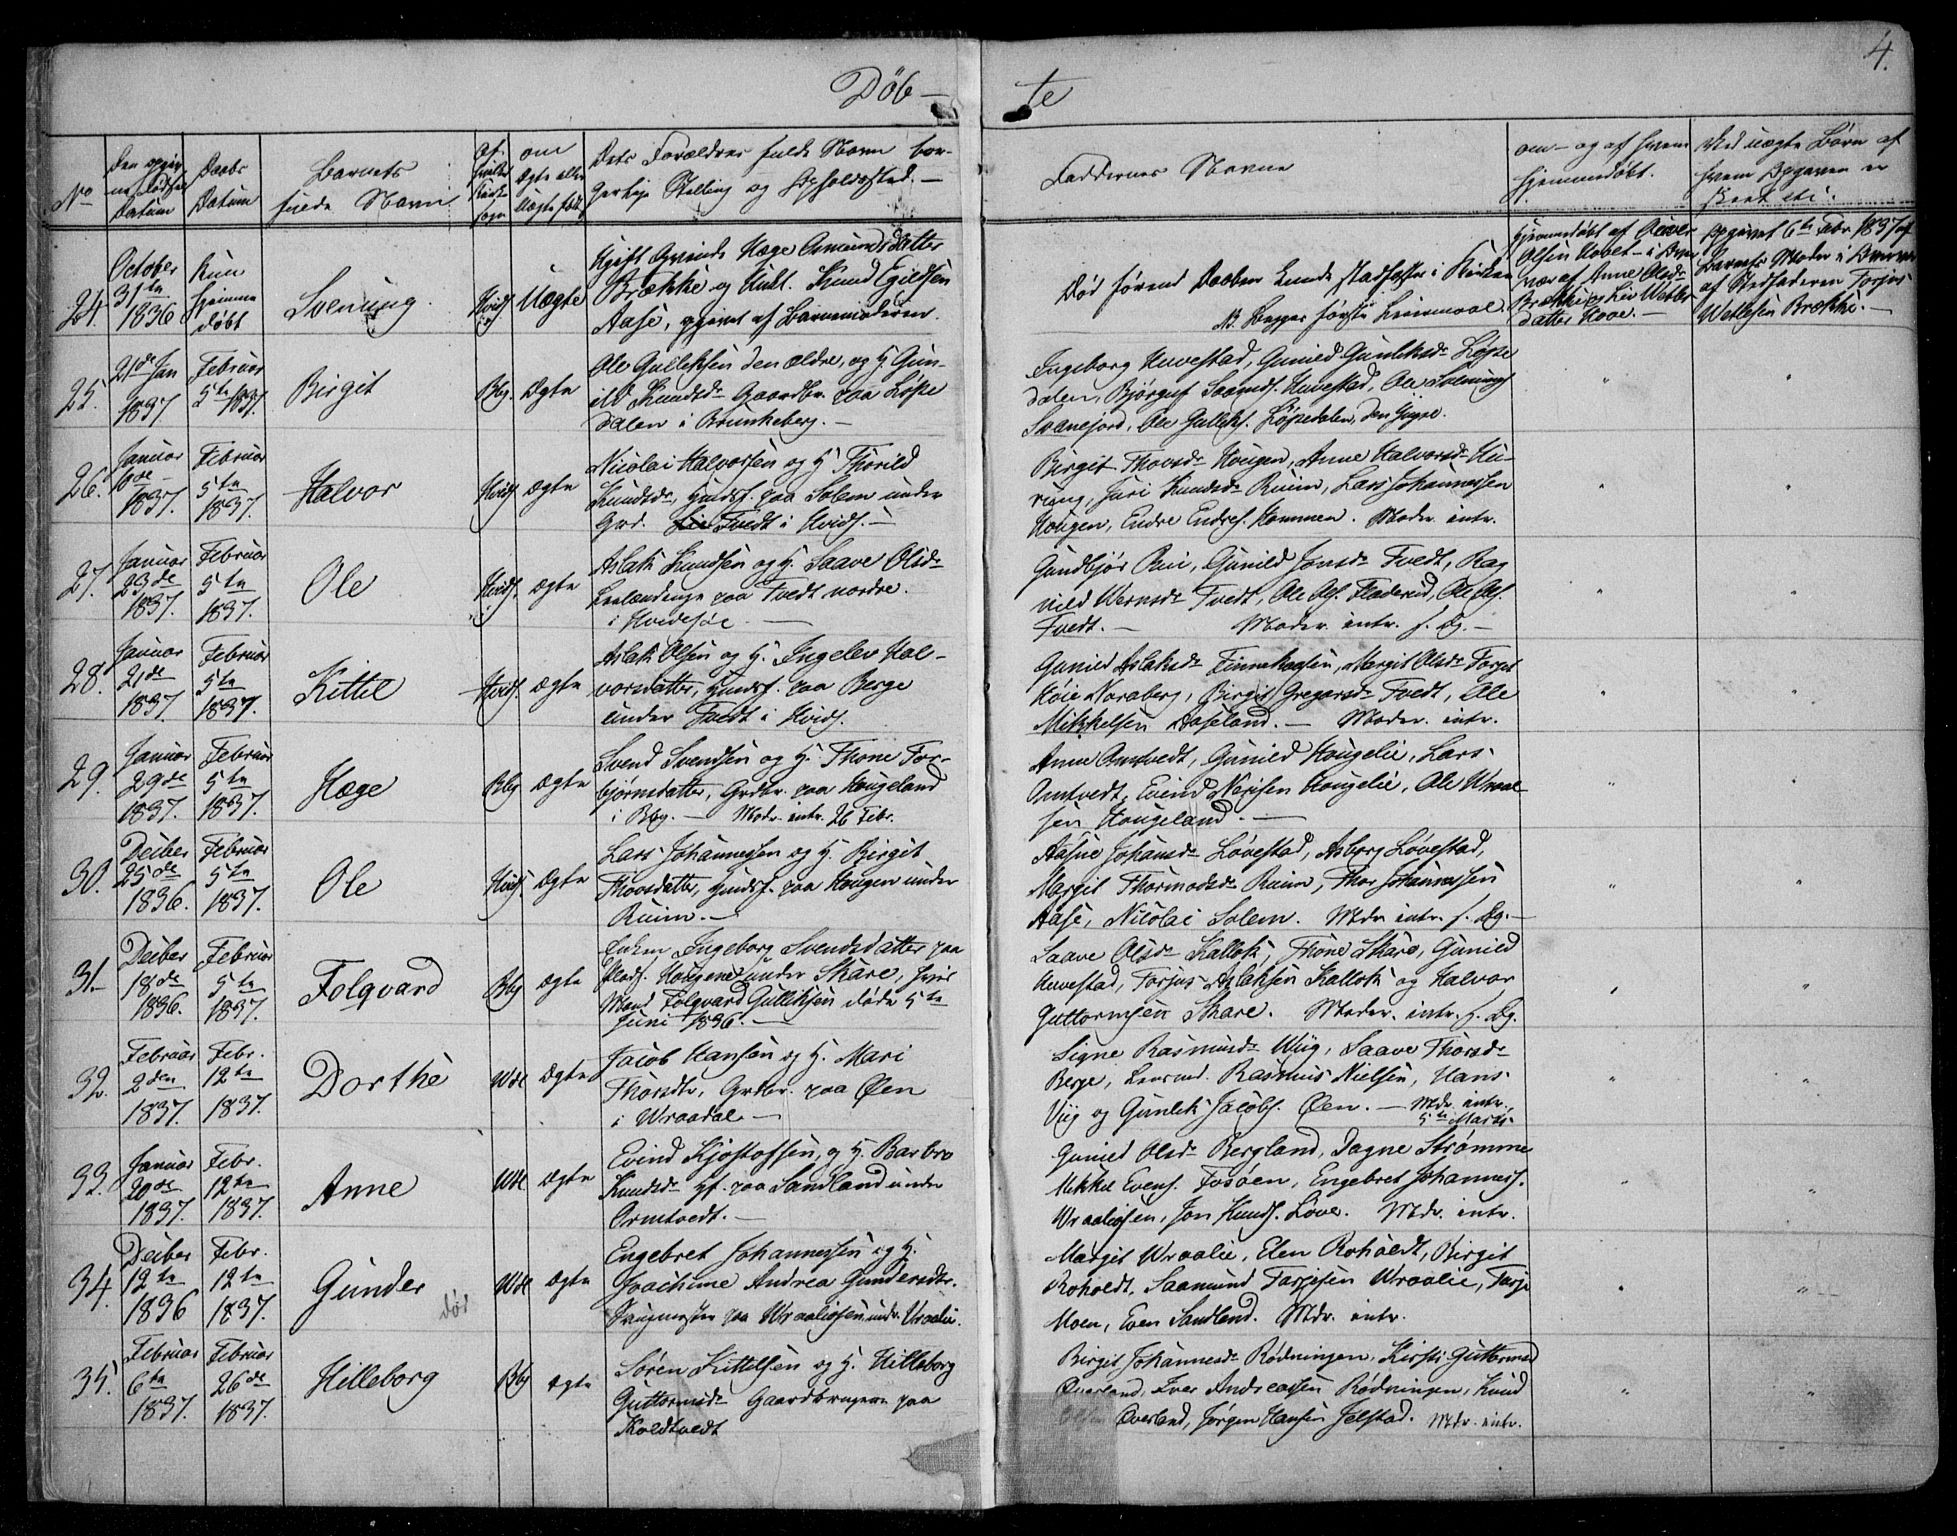 4.
Døb — te
No
Den opgivne Fødsels Datum
Daabs Datum
Barnets fulde Navn
af hvilket Kirkesogn
om Ægte eller Uægte født
Dets Forældres fulde Navn borgerlige Stilling og Opholdssted. —
Faddernes Navne
om - og af hvem hjemmedøbt.
Ved uægte Børn af hvem Opgaven er skeet etc.
24.
October 31te 1836
Kun hjemmedøbt
Svenung
Hvids.
Uægte
Ugift Qvinde Hæge Asmundsdatter
Brække og Unkl. Knud Egilsen
Aase, opgivet af Barnemoderen.
Død førend Daaben kunde stadfæstes i Kirken
NB. Begges første Leiermaal.
Hjemmedøbt af
Olsen Hovet - i Overvær af Anne Olsdr
Brække og Liv Wetles
datter Hove. —
Opgivet 6te Febr 1837 af
Barnets Moder i Overvær
af Stedfaderen Torjus
Wetlesen Brække. —
25.
21de Jan 1837
Februar 5te 1837.
Birgit
Bbg.
Ægte
Ole Gulleksen den ældre, og H. Gun-
ild Knudsdr Gaardbr. paa Løpe
dalen i Brunkeberg. —
Ingeborg Huvestad, Gunild Gunleksdr Løpe
dalen, Bjørguf Saamds. Huvestad, Ole Svenungs.
Svanejord, Ole Gulleks. Løpedalen, den Yngre.
26.
Januar 6de 1837.
Februar 5te 1837.
Halvor
Hvids.
Ægte
Nicolai Halvorsen og H. Thorild
Knudsdr, Huusf. paa Solem under
Grd. Tvedt i Hvids. —
Birgit Thovsdr Hougen, Anne Halvorsdr Hu-
rung, Juri Knudsdr Ruim, Lars Johannessen
Hougen, Endre Endres. Hommen. Moder. intr.
27.
Januar 23de 1837.
Februar 5te 1837.
Ole
Hvids.
Ægte
Aslak Knudsen og H. Saave Olsdr
Leelændinge paa Tvedt nordre.
i Hvidesøe. —
Gundbjør Rui, Gunild Jonsdr Tvedt, Rag
nild Wernsdr Tvedt, Ole Ols. Fladerud, Ole Ols.
Tvedt. — Moder. intr. s. Dg. —
28.
Januar 21de 1837
Februar 5te 1837.
Kittil
Hvids.
Ægte
Aslak Olsen og H. Ingelev Hal-
vorsdatter, Huusf. paa Berge
under Tvedt i Hvids.
Gunild Aslaksdr Finnekaasen, Margit Olsdr Torps
Høie Noraberg, Birgit Gregarsdr Tvedt, Ole
Mikkelsen Aaseland. — Moder. intr.
29.
Januar 29de 1837.
Februar 5te 1837.
Hæge
Bbg
Ægte
Svend Svendsen og H. Thone Tor-
bjørnsdatter, Grdbr. paa Hougeland
i Bbg. — Modr. intr. 26 Febr.
Anne Omtvedt, Gunild Hougelie, Lars
Omtvedt, Evind Nerisen Hougelie, Ole Wraal-
sen Hougeland. —
30.
Deiber 25de 1836.
Februar 5te 1837.
Ole
Hvids.
Ægte
Lars Johannessen og H. Birgit
Thovsdatter, Huusf. paa Hougen under
Ruim. —
Aasne Johansdr Løvestad, Asborg Løvestad,
Margit Thormodsdr Ruim, Thor Johannessen
Aase, Nicolai Solem. Mdr. intr. s. Dg. —
31.
Deiber 18de 1836.
Februar 5te 1837.
Folqvard
Bbg
Ægte
Enken Ingeborg Svendsdatter paa
Plads. Haugene under Skare, hvis
Mand Folqvard Gulliksen døde 5te
Juni 1836. —
Saave Olsdr Kallok, Thone Skare, Gunild
Huvestad, Torjus Aslaksen Kallok og Halvor
Guttormsen Skare. Moder. intr. s. Dg.
32.
Februar 2den 1837.
Febr. 12te 1837.
Dorthe
Wdl
Ægte
Jacob Hansen og H. Mari
Thorsdtr, Grdbr. paa Øen
i Wraadal. —
Signe Rasmusdr Wiig, Saave Thorsdr
Berge, Lensmd. Rasmus Nielsen, Hans
Viig og Gunlek Jacobs. Øen. — Mdr. intr.
5te Marts.
33.
Januar 20de 1837.
Febr. 12te 1837.
Anne
Wdl
Ægte
Evind Kjøstofsen, og H. Barbro
Knudsdr Hf. paa Sandland under
Ormtvedt. —
Gunild Olsdr Bergland, Dagne Strømme
Mikkel Evens. Fosøen, Engebret Johanness.
Wraaliosen, Jon Knuds. Løve. Mdr. intr.
34.
Deiber 12te 1836
Febr. 12te 1837.
Gunder
død
Wdl
Ægte
Engebret Johannessen og H.
Joachime Andrea Gundersdtr.
paa Wraaliosen und. Vraalie.
Margit Wraalie, Elen Roholdt, Birgit
Roholdt, Saamund Tarjesen Wraalie, Tarje
Moen, Even Sandland. Mdr. intr.
35.
Februar 6te 1837.
Februar 26de 1837.
Hilleborg
Bbg
Ægte
Søren Kittelsen og H. Hilleborg
Guttormsdr Gaardbrugere paa
Koldtvedt
Birgit Johannesdr Rødningen, Kirsti Guttormsd
Overland, Iver Andreassen Rødningen, Knud
Overland, Jørgen Hansen Jelstad. Mdr. intr.